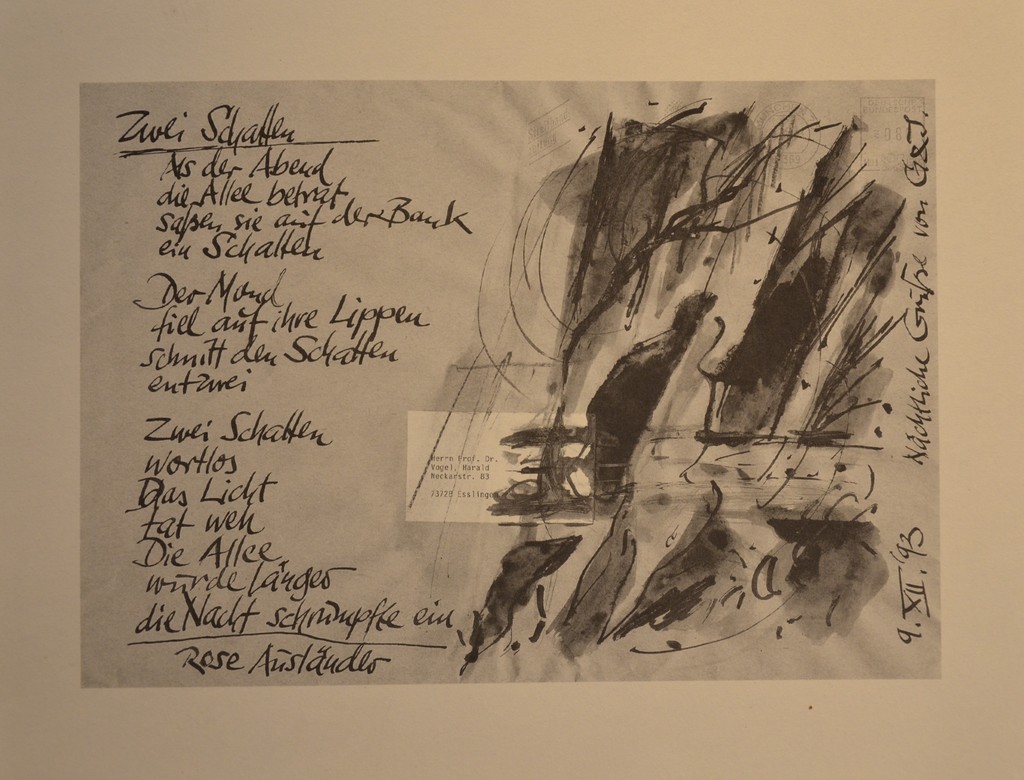 Zwei Schatten
Als der Abend
die Allee betrat
saßen sie auf der Bank
ein Schatten
Der Mond
fiel auf ihre Lippen
schnitt den Schatten
entzwei
Zwei Schatten
wortlos
Das Licht
tat weh
Die Allee
wurde länger
die Nacht schrumpfte ein
Rose Ausländer
Herrn Prof. Dr.
Vogel, Harald
Neckarstr. 83
73728 Esslingen
9. XII. '93 Nächtliche Grüße von